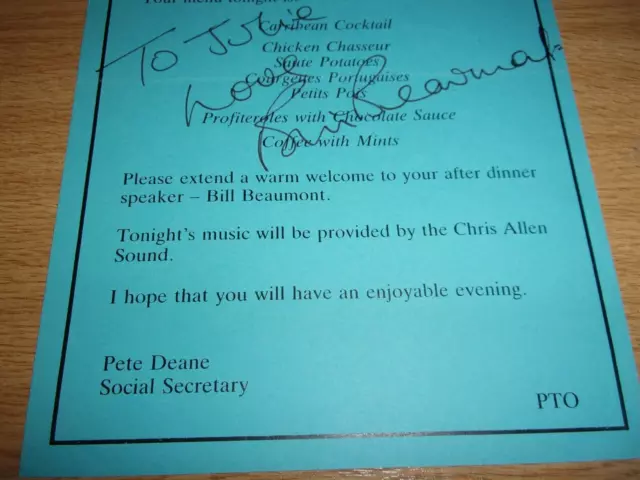 Your menu tonight is:
Carribean Cocktail
To Julie
Chicken Chasseur
Saute Potatoes
Love
Courgettes Portugaises
Petits Pois
Profiteroles with Chocolate Sauce
Coffee with Mints
Please extend a warm welcome to your after dinner
speaker – Bill Beaumont.
Tonight's music will be provided by the Chris Allen
Sound.
I hope that you will have an enjoyable evening.
Pete Deane
Social Secretary
PTO